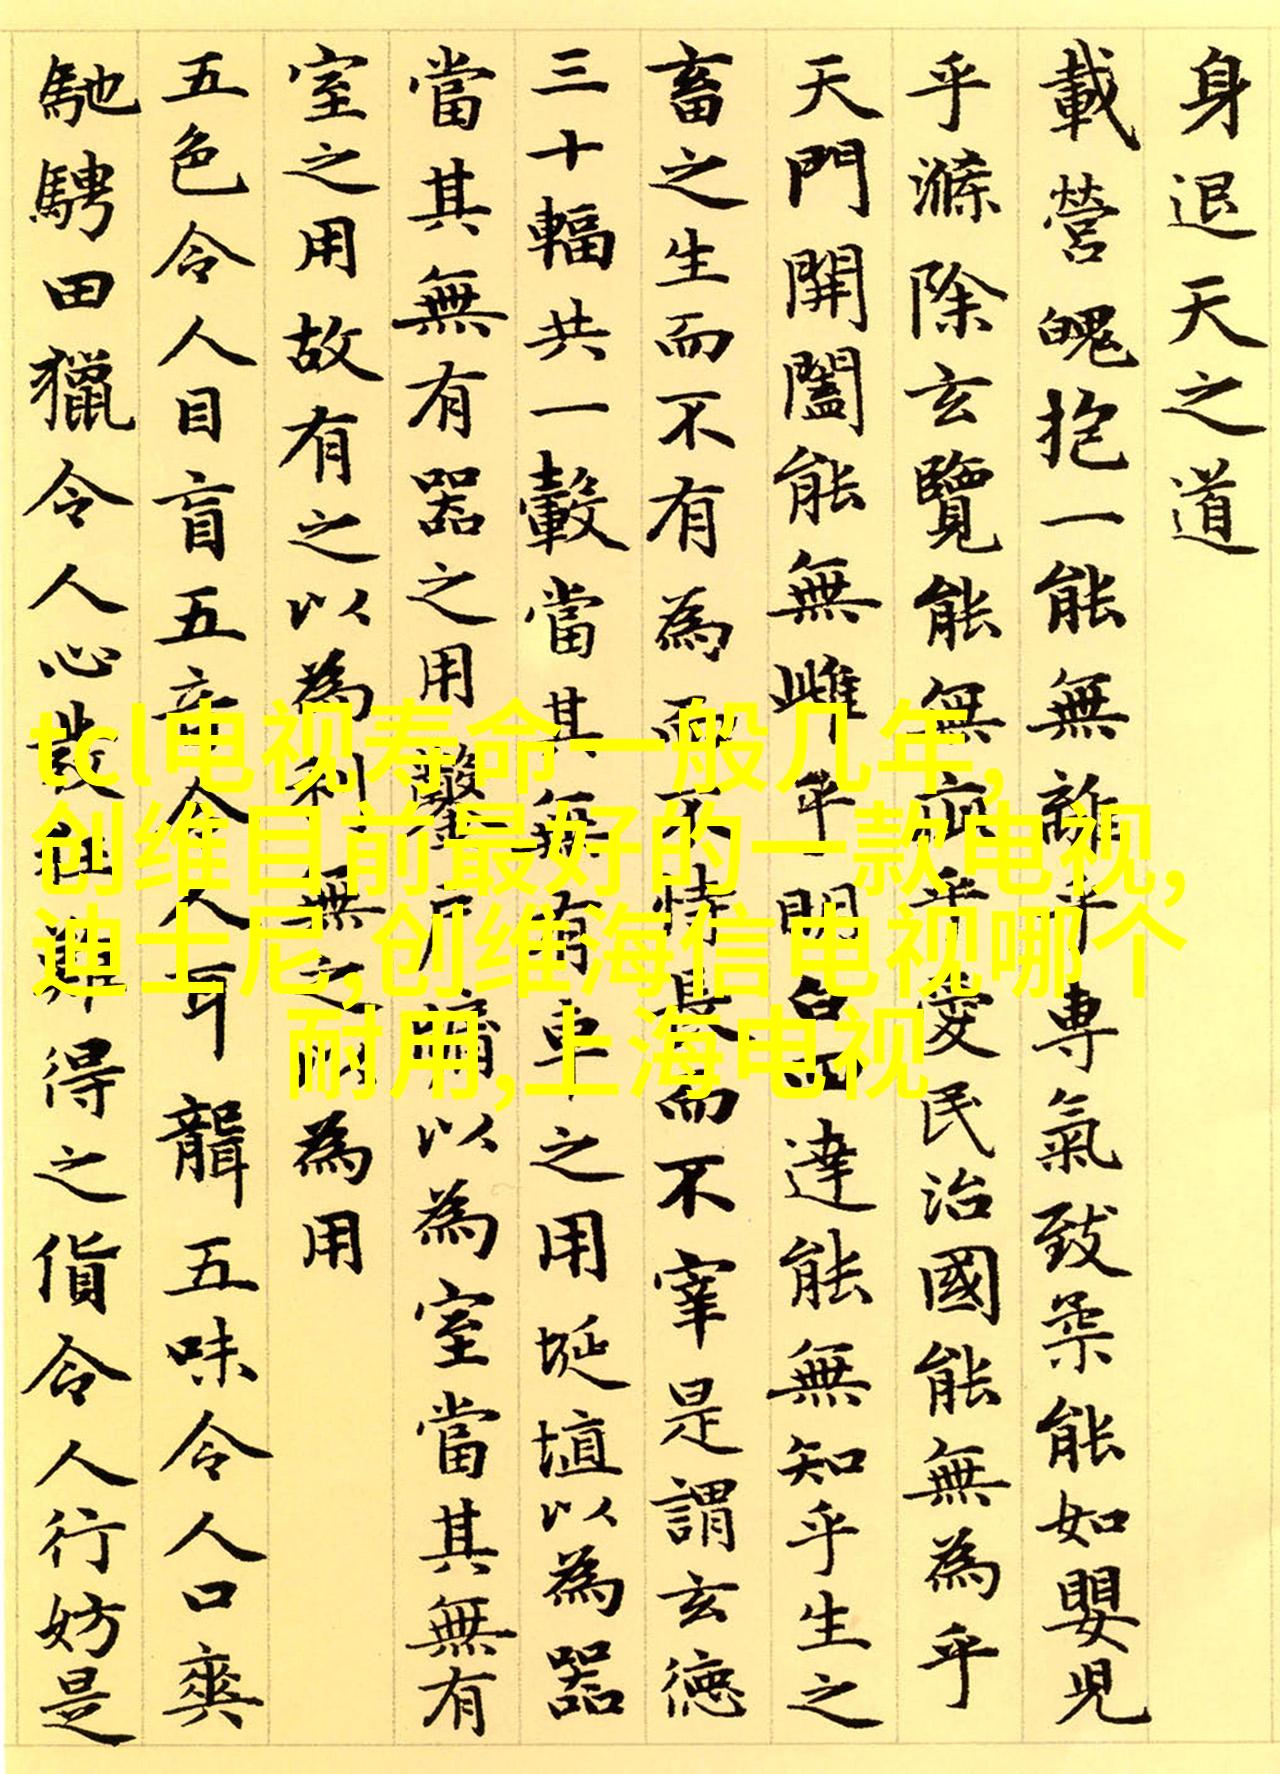 身退天之道
載營魄抱一能無離乎專氣致柔能如嬰兒
乎滌除玄覽能無疵乎愛民治國能無為乎
天門開闔能無雌乎明白四達能無知乎生之
畜之生而不有為而不恃長而不宰是謂玄德
三十輻共一轂當其無有車之用埏埴以為器
當其無有器之用鑿戶牖以為室當其無有
室之用故有之以為利無之以為用
五色令人目盲五音令人耳聾五味令人口爽
馳騁田獵令人心發狂難得之貨令人行妨是
tcl电视寿命一般几年,
创维目前最好的一款电视,
迪士尼,创维海信电视哪个
耐用,上海电视